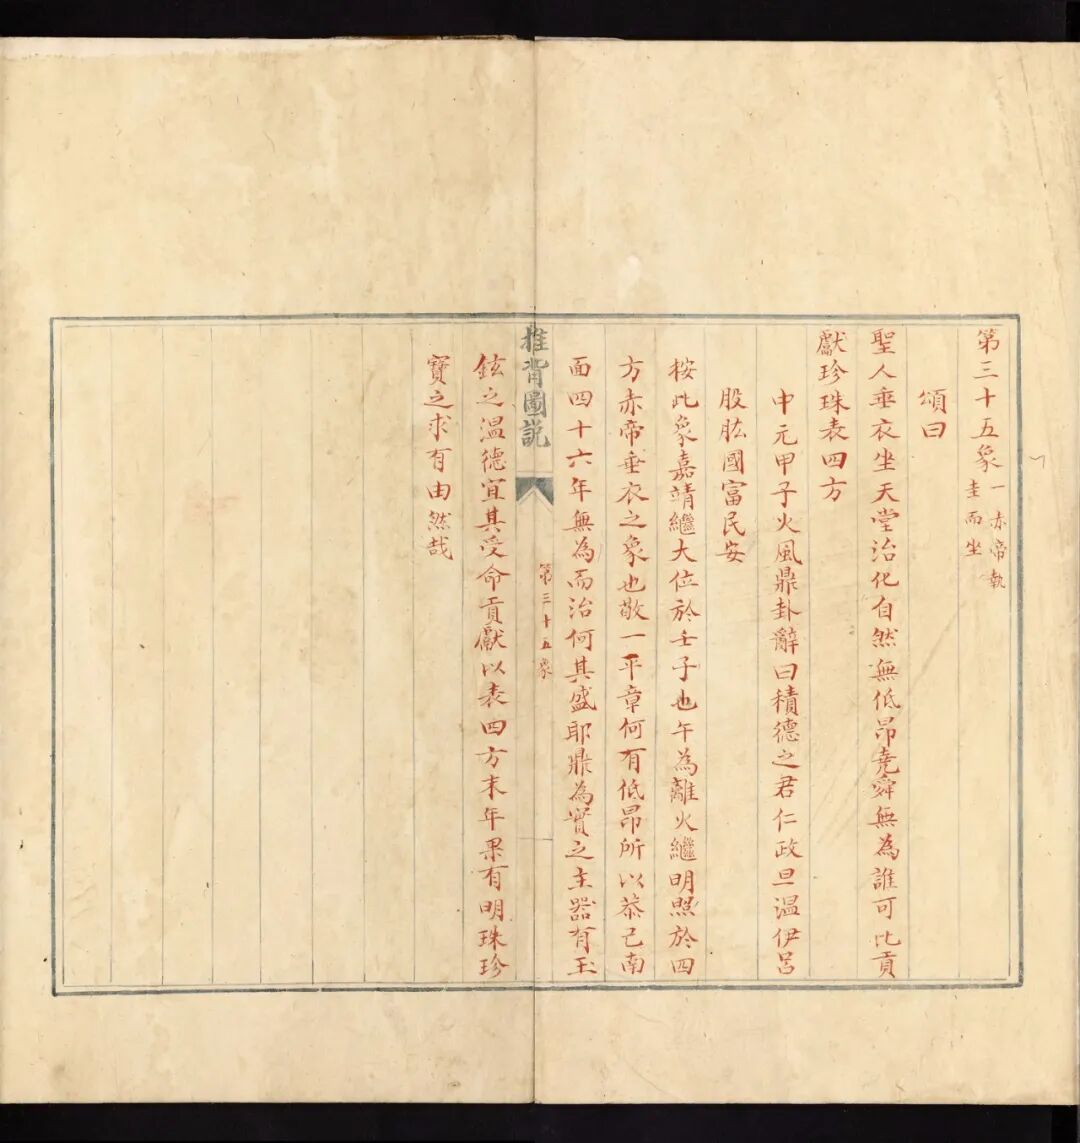 第三十五象
一赤帝執
圭而坐
頌曰
聖人垂衣坐天堂治化自然無低昂堯舜無為誰可比貢
獻珍珠表四方
中元甲子火風鼎卦辭曰積德之君仁政旦溫伊呂
股肱國富民安
按此象嘉靖繼大位於壬子也午為離火繼明照於四
方赤帝垂衣之象也敬一平章何有低昂所以恭己南
面四十六年無為而治何其盛耶鼎為寶之主器有玉
推背圖說
第三十五象
鉉之溫德宜其受命貢獻以表四方末年果有明珠珍
寶之求有由然哉